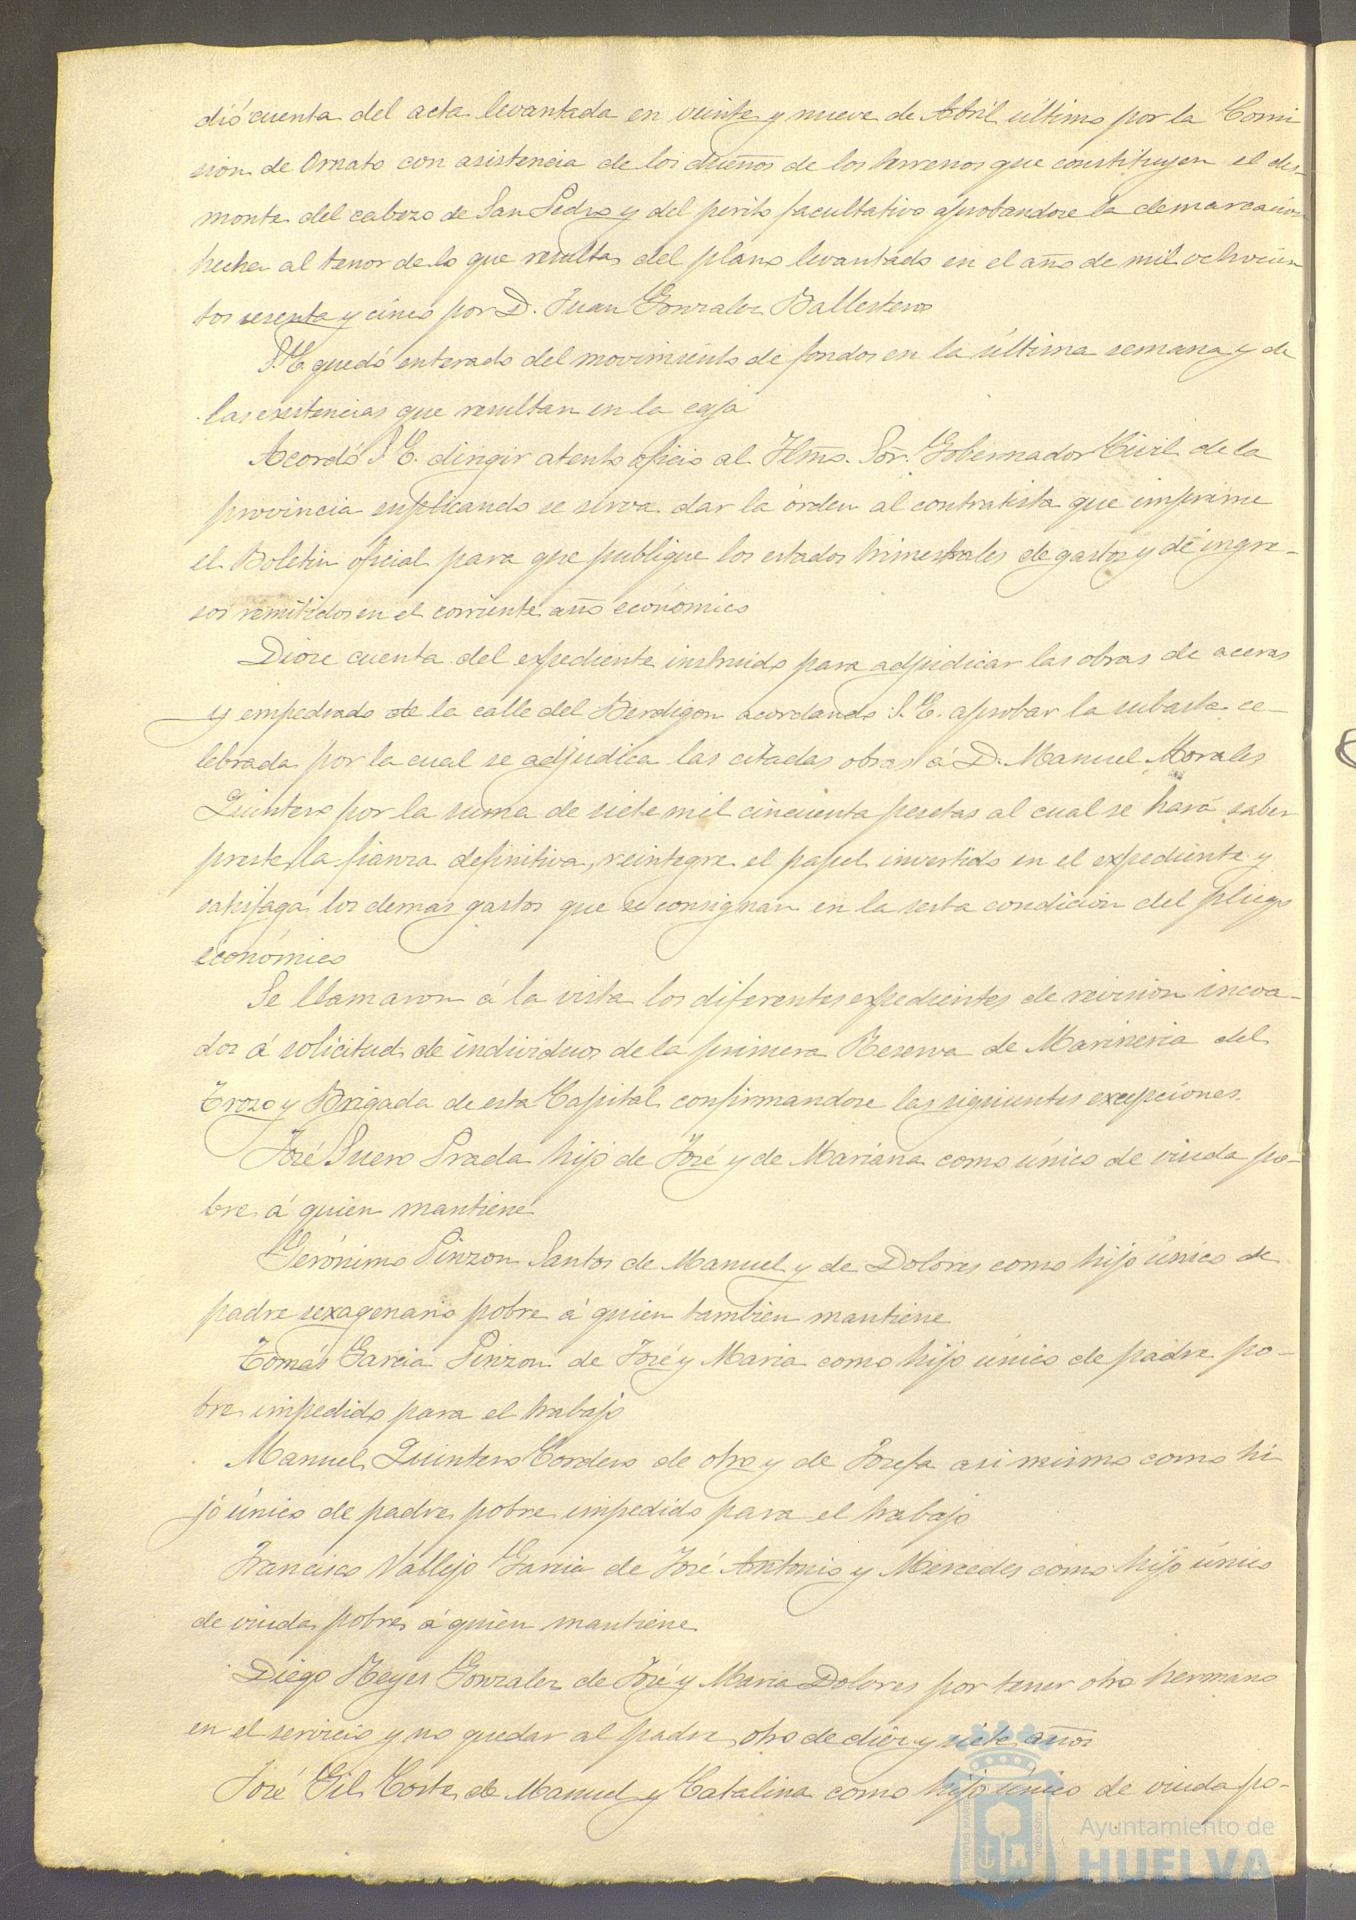 dió cuenta del acta levantada en veinte y nueve de Abril último por la Comi
sion de Ornato con asistencia de los dueños de los terrenos que constituyen el des-
monte del cabezo de San Pedro y del perito facultativo aprobandose la demarcacion
hecha al tenor de lo que resulta del plano levantado en el año de mil ochocien
tos sesenta y cinco por D. Juan Gonzalez Ballesteros
S. E. quedó enterado del movimiento de fondos en la última semana y de
las existencias que resultan en la caja
Acordó S. E. dirigir atento oficio al Iltmo. Sor. Gobernador Civil de la
provincia suplicando se sirva dar la órden al contratista que imprime
el Boletin oficial para que publique los estados trimestrales de gastos y de ingre-
sos remitidos en el corriente año económico
Diose cuenta del expediente instruido para adjudicar las obras de aceras
y empedrado de la calle del Berdigon acordando S. E. aprobar la subasta ce-
lebrada por la cual se adjudica las citadas obras á D. Manuel Morales
Quintero por la suma de siete mil cincuenta pesetas al cual se hará saber
preste la fianza definitiva, reintegre el papel invertido en el expediente y
satisfaga los demas gastos que se consignan en la sesta condicion del pliego
económico
Se llamaron á la vista los diferentes expedientes de revision incoa-
dos á solicitud de individuos de la primera Reserva de Marineria del
Trozo y Brigada de esta Capital confirmandose las siguientes excepciones.
José Suero Prada hijo de José y de Mariana como único de viuda po-
bre á quien mantiene
Gerónimo Pinzon Santos de Manuel y de Dolores como hijo único de
padre sexagenario pobre á quien tambien mantiene
Tomás Garcia Pinzon de José y Maria como hijo único de padre po-
bre impedido para el trabajo
Manuel Quintero Cordero de otro y de Josefa asi mismo como hi
jo único de padre pobre impedido para el trabajo
Francisco Vallejo Garcia de José Antonio y Mercedes como hijo único
de viuda pobre á quien mantiene
Diego Reyes Gonzalez de José y Maria Dolores por tener otro hermano
en el servicio y no quedar al padre otro de diez y siete años
José Gil Corte de Manuel y Catalina como hijo único de viuda po-
Ayuntamiento de
HUELVA